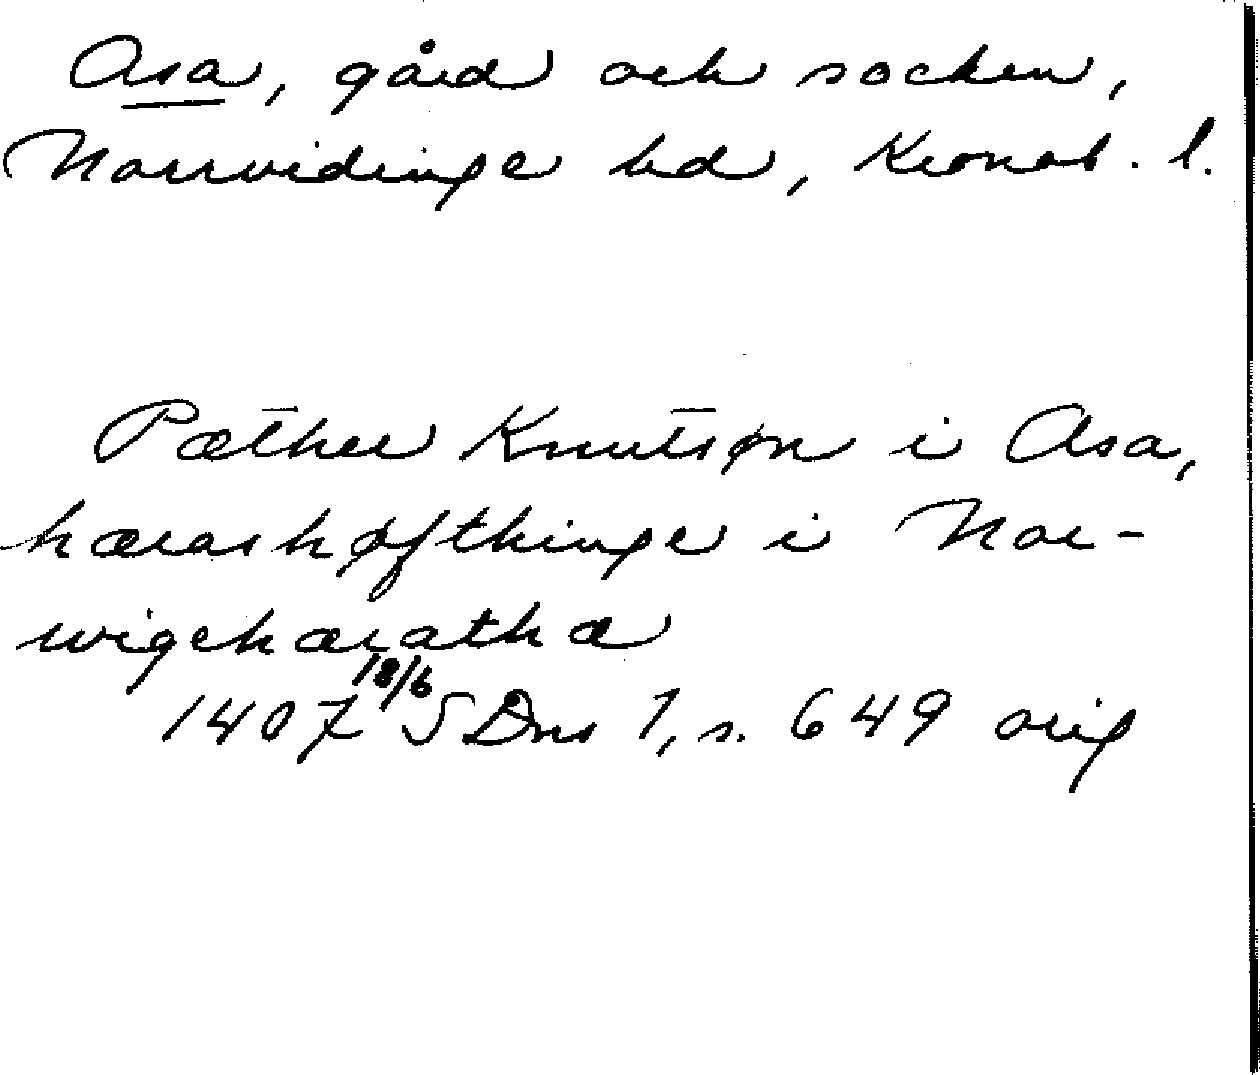 Asa, gård och socken,
Norrvidinge hd, Kronob. l.
Pæther Knutsøn i Asa,
hærashøfthinge i Nor-
wigehæratha
1407 18/6 SDns 1, s. 649 orig